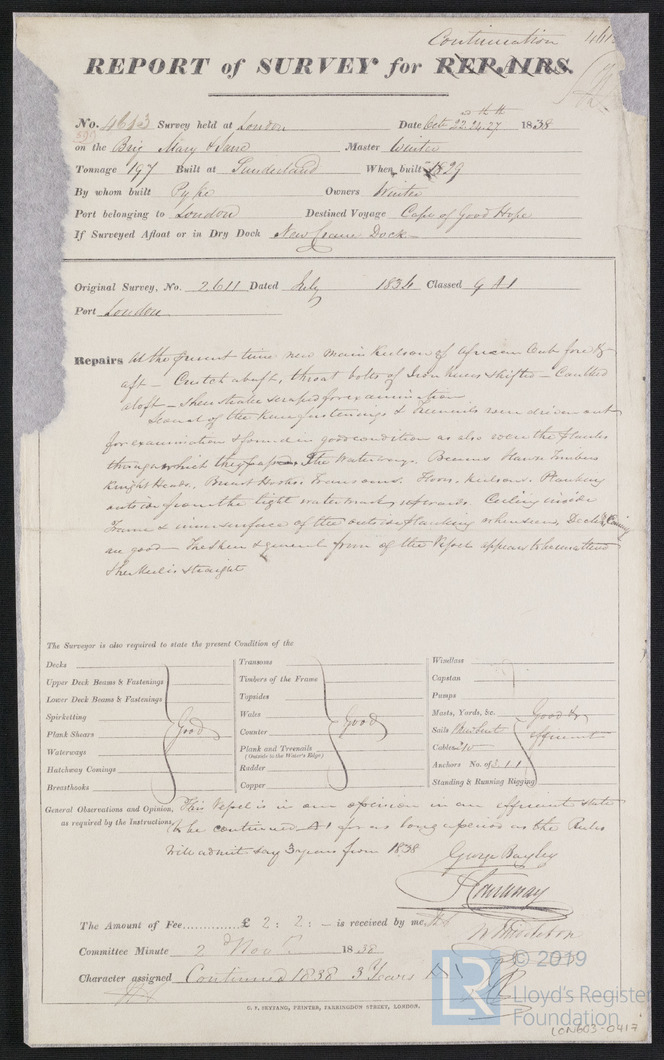 Continuation 461
REPORT of SURVEY for REPAIRS.
No. 4613 Survey held at London Date Oct 22.24.27 1838
390
on the Brig Mary & Jane Master Winter
Tonnage 197 Built at Sunderland When built 1829
By whom built Owners Winter
Port belonging to London Destined Voyage Cape of Good Hope
If Surveyed Afloat or in Dry Dock New Crane Dock
Original Survey, No. 2611 Dated July 1834 Classed 9 A 1
Port London
Repairs At the present time new Main Keelson of African Oak fore &
aft - Crutch abaft, throat bolts of Iron Knees shifted - Caulked
aloft - Sheerstrake scraped for examination
Several of the fastenings & Treenails were driven out
for examination & found in good condition as also were the planks
through which they passed. The Waterways, Beams Hawse Timbers
Knight Heads, Breast Hooks, Transoms, Floors, keelsons, Planking
outside from the light watermark upwards. Ceiling inside
Frame & inner surface of the outside planking where seen, Decks & Coming
are good - The Sheer & general form of the Vessel appears to be
The Keel is straight
The Surveyor is also required to state the present Condition of the
Decks
Upper Deck Beams & Fastenings
Lower Deck Beams & Fastenings
Spirketting
Plank Shears
Waterways
Hatchway Comings
Breasthooks
Good
Transoms
Timbers of the Frame
Topsides
Wales
Counter
Plank and Treenails
(Outside to the Water's Edge)
Rudder
Copper
Good
Windlass
Capstan
Pumps
Masts, Yards, &c.
Sails
Cables
Anchors No. of 3.1.1
Standing & Running Rigging
Good &
efficient
General Observations and Opinion, This Vessel is in our opinion in an efficient state
as required by the Instructions, to be continued A1 for as long a period as the Rules
will admit say 3 years from 1838
George Bayley
The Amount of Fee £ 2 : 2 : - is received by me
Committee Minute 2nd Nov 1838
Character assigned Continued 1838 3 Years A1
© 2019
LR
Lloyd's Register
Foundation
C. F. SEYFANG, PRINTER, FARRINGDON STREET, LONDON.
LON603-0417